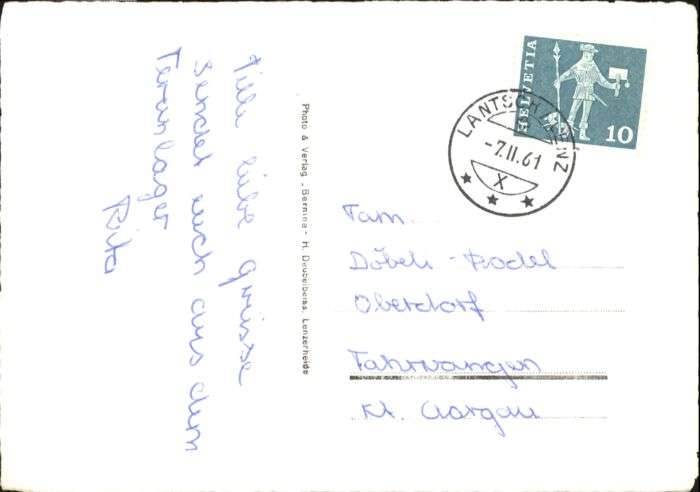 Viele liebe Grüsse
sendet euch aus dem
Ferienlager
Rita
Photo & Verlag „Bernina" - H. Deubelbeiss, Lenzerheide
HELVETIA
10
LANTSCH/LENZ
-7.II.61
X
Fam.
Döbeli-Rodel
Oberdorf
Fahrwangen
Kt. Aargau